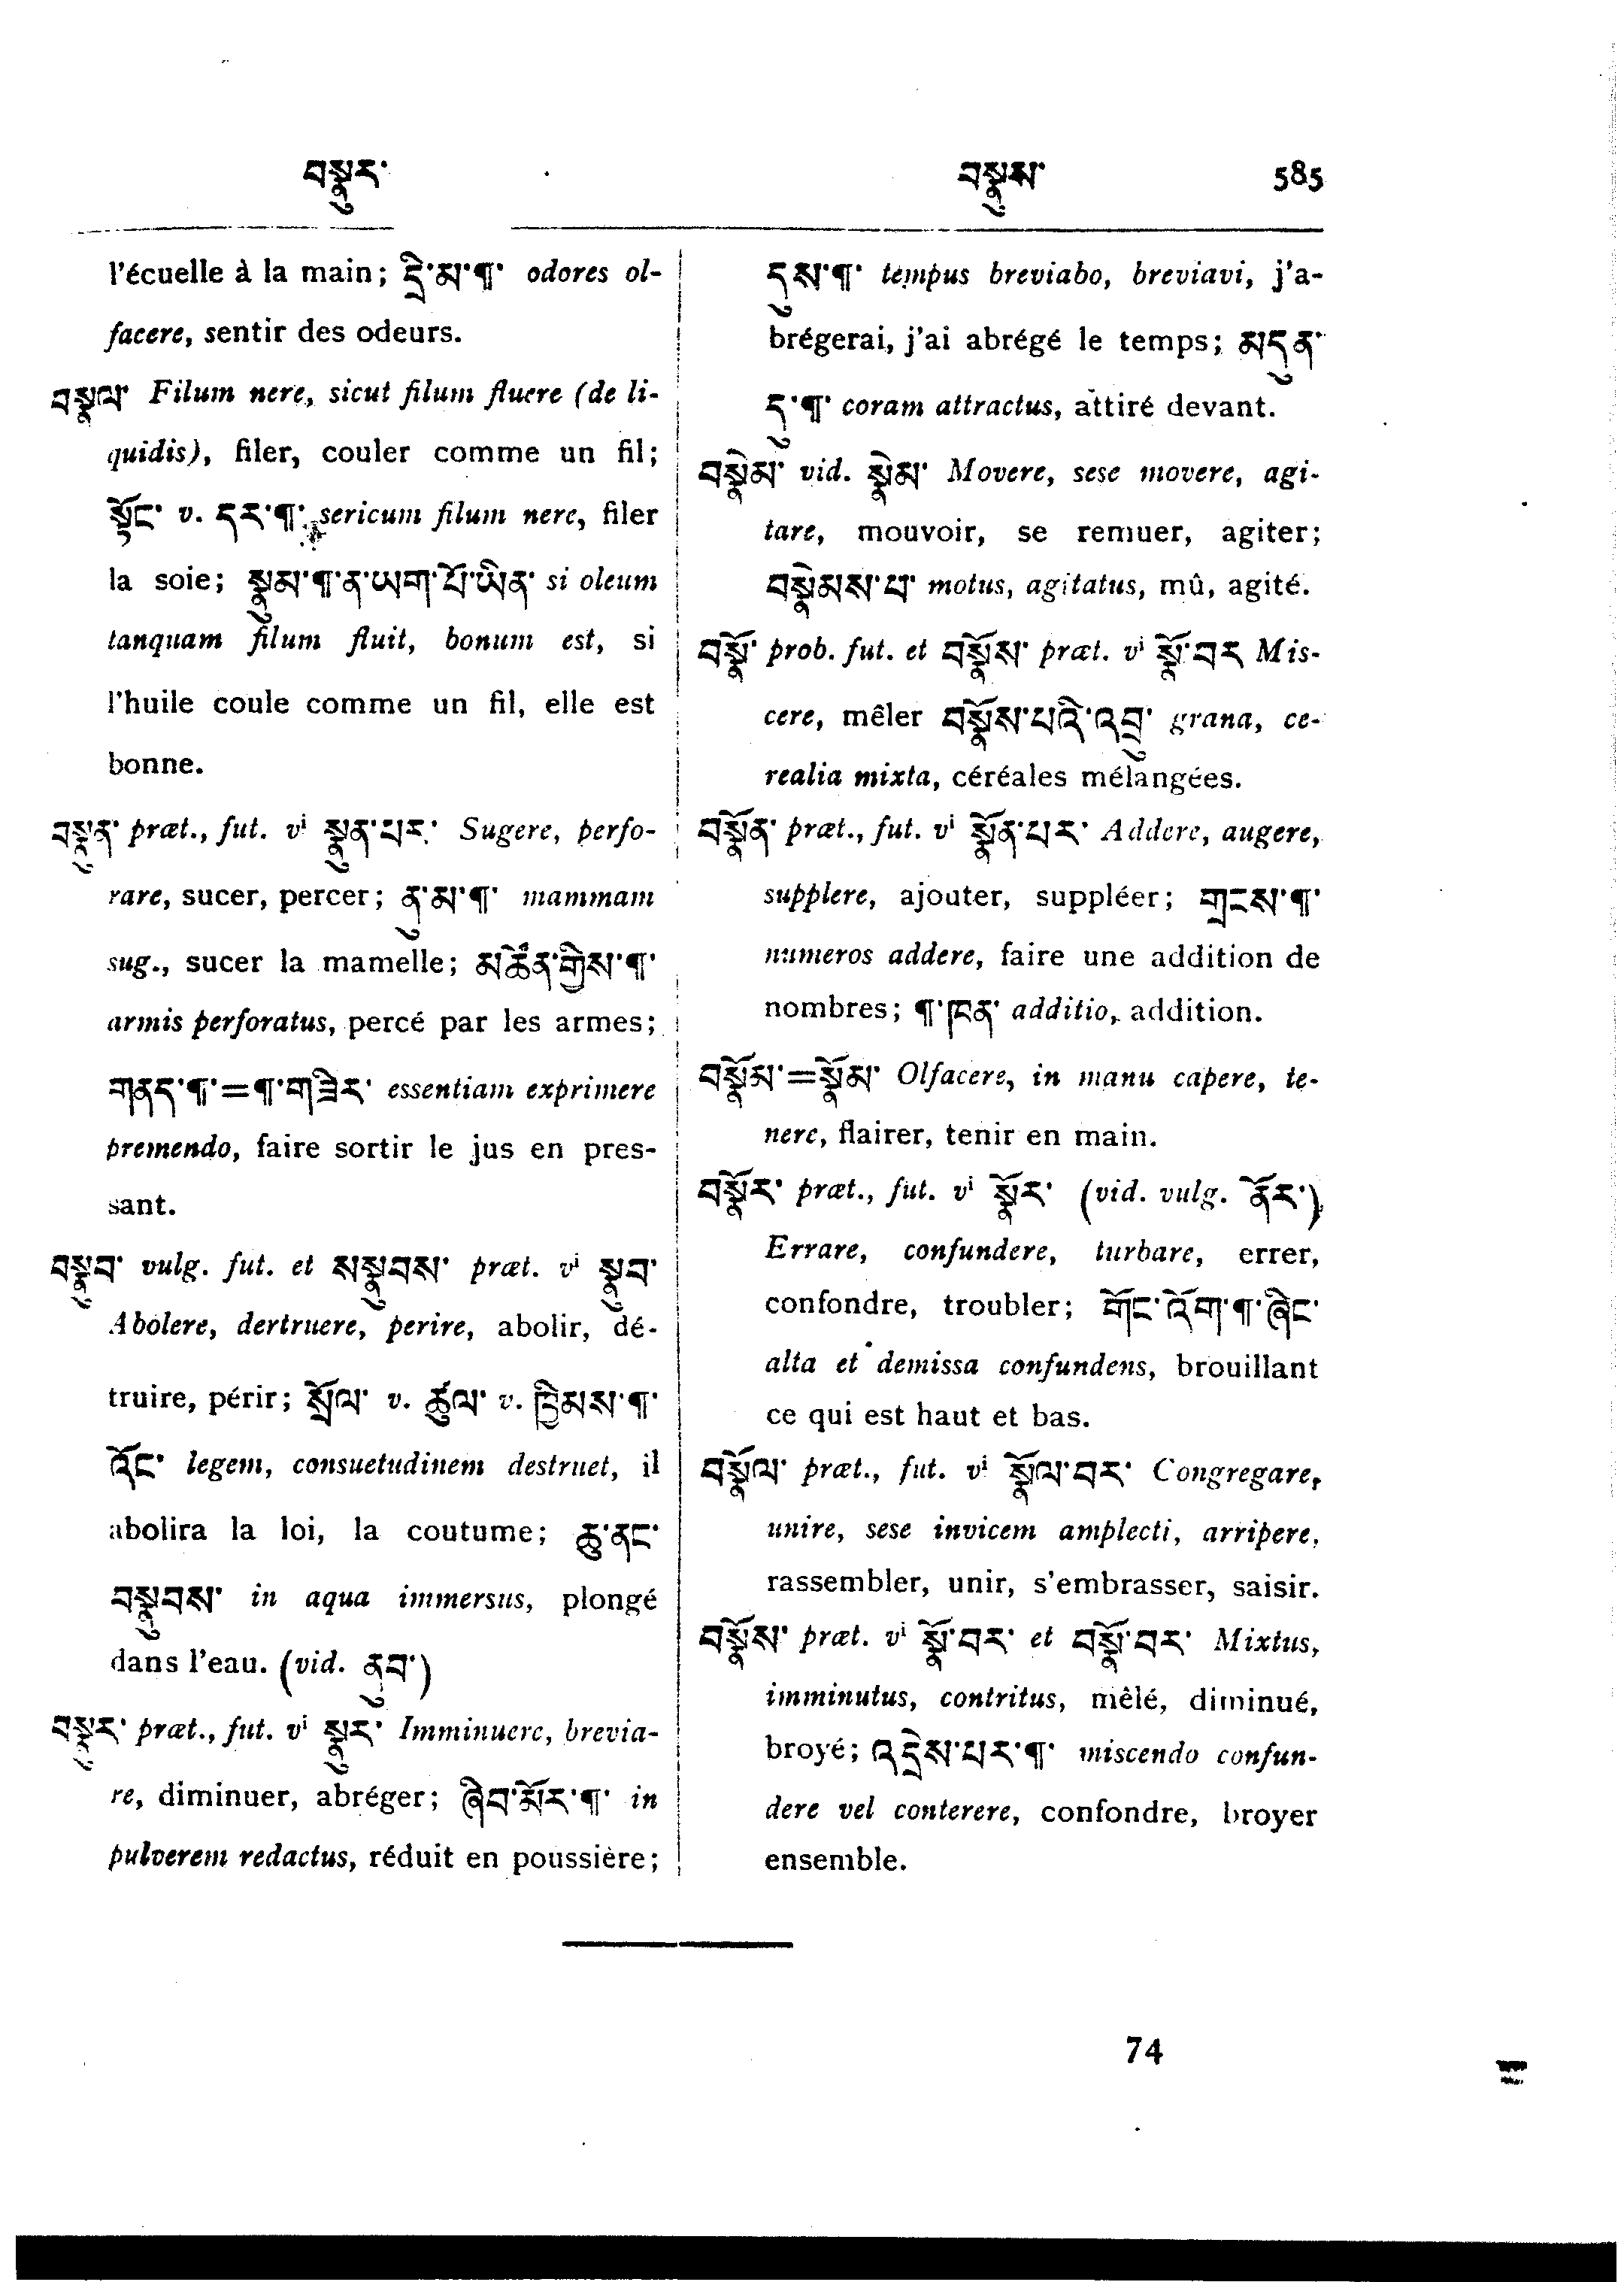 བསྣུར་ བསྣུམ་ 585
l'écuelle à la main; དྲི་མ་¶་ odores ol-
facere, sentir des odeurs.
བསྣལ་ Filum nere, sicut filum fluere (de li-
quidis), filer, couler comme un fil;
སྟོང་ v. དར་¶་ sericum filum nere, filer
la soie; སྣུམ་¶་ན་ཡག་པོ་ཡིན་ si oleum
tanquam filum fluit, bonum est, si
l'huile coule comme un fil, elle est
bonne.
བསྣུན་ præt., fut. vⁱ སྣུན་པར་ Sugere, perfo-
rare, sucer, percer; ནུ་མ་¶་ mammam
sug., sucer la mamelle; མཚོན་གྱིས་¶་
armis perforatus, percé par les armes;
གནད་¶་=¶་གཟེར་ essentiam exprimere
premendo, faire sortir le jus en pres-
sant.
བསྣུབ་ vulg. fut. et སསྣུབས་ præt. vⁱ སྣུབ་
Abolere, dertruere, perire, abolir, dé-
truire, périr; སྲོལ་ v. ཚུལ་ v. ཁྲིམས་¶་
འོང་ legem, consuetudinem destruet, il
abolira la loi, la coutume; ཆུ་ནང་
བསྣུབས་ in aqua immersus, plongé
dans l'eau. (vid. ནུབ་)
བསྣུར་ præt., fut. vⁱ སྣུར་ Imminuere, brevia-
re, diminuer, abréger; ཞིབ་མོར་¶་ in
pulverem redactus, réduit en poussière;
དུས་¶་ tempus breviabo, breviavi, j'a-
brégerai, j'ai abrégé le temps; མདུན་
དུ་¶་ coram attractus, attiré devant.
བསྣེམ་ vid. སྣེམ་ Movere, sese movere, agi-
tare, mouvoir, se remuer, agiter;
བསྣེམས་པ་ motus, agitatus, mû, agité.
བསྣོ་ prob. fut. et བསྣོས་ præt. vⁱ སྣོ་བར Mis-
cere, mêler བསྣོས་པའི་འབྲུ་ grana, ce-
realia mixta, céréales mélangées.
བསྣོན་ præt., fut. vⁱ སྣོན་པར་ Addere, augere,
supplere, ajouter, suppléer; གྲངས་¶་
numeros addere, faire une addition de
nombres; ¶་ཁན་ additio, addition.
བསྣོམ་=སྣོམ་ Olfacere, in manu capere, te-
nere, flairer, tenir en main.
བསྣོར་ præt., fut. vⁱ སྣོར་ (vid. vulg. ནོར་)
Errare, confundere, turbare, errer,
confondre, troubler; གོང་འོག་¶་ཞིང་
alta et demissa confundens, brouillant
ce qui est haut et bas.
བསྣོལ་ præt., fut. vⁱ སྣོལ་བར་ Congregare,
unire, sese invicem amplecti, arripere,
rassembler, unir, s'embrasser, saisir.
བསྣོས་ præt. vⁱ སྣོ་བར་ et བསྣོ་བར་ Mixtus,
imminutus, contritus, mêlé, diminué,
broyé; འདྲེས་པར་¶་ miscendo confun-
dere vel conterere, confondre, broyer
ensemble.
74